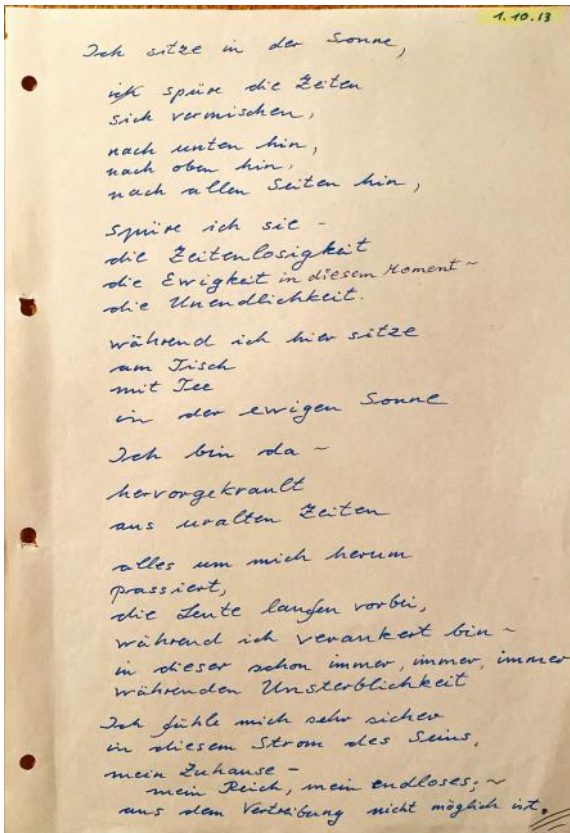 1.10.13
Ich sitze in der Sonne,
ich spüre die Zeiten
sich vermischen,
nach unten hin,
nach oben hin,
nach allen Seiten hin,
spüre ich sie –
die Zeitenlosigkeit
die Ewigkeit in diesem Moment ~
die Unendlichkeit.
während ich hier sitze
am Tisch
mit Tee
in der ewigen Sonne
Ich bin da ~
hervorgekrault
aus uralten Zeiten
alles um mich herum
passiert,
die Leute laufen vorbei,
während ich verankert bin ~
in dieser schon immer, immer, immer
währenden Unsterblichkeit
Ich fühle mich sehr sicher
in diesem Strom des Seins,
mein Zuhause –
mein Reich, mein endloses, ~
aus dem Vertreibung nicht möglich ist.